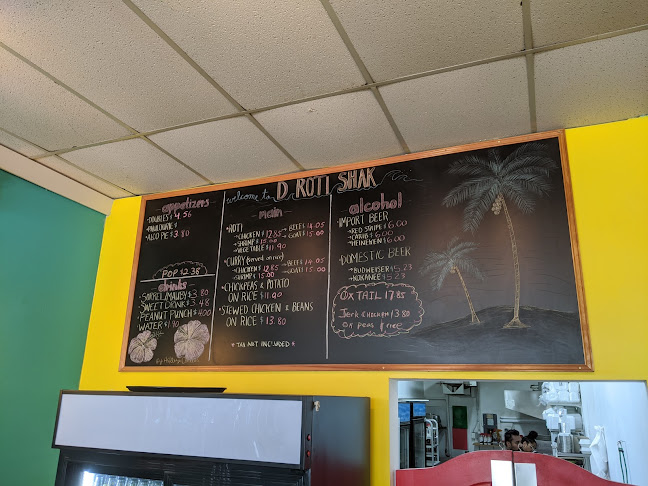 welcome to D ROTI SHAK
appetizers
DOUBLES $4.56
PHOLOURIE $
ALOO PIE $3.80
POP $2.38
drinks
SORREL/MAUBY $3.80
SWEET DRINK $3.48
PEANUT PUNCH $4.00
WATER $1.90
main
ROTI
CHICKEN $12.85 BEEF $14.05
SHRIMP $15.00 GOAT $15.00
VEGETABLE $11.90
CURRY (served on rice)
CHICKEN $12.85 BEEF $14.05
SHRIMP $15.00 GOAT $15.00
CHICKPEAS & POTATO
ON RICE $11.90
STEWED CHICKEN & BEANS
ON RICE $13.80
* TAX NOT INCLUDED *
alcohol
IMPORT BEER
RED STRIPE $6.00
CARIB $6.00
HEINEKEN $6.00
DOMESTIC BEER
BUDWEISER $5.23
KOKANEE $5.23
OXTAIL 17.85
Jerk Chicken 13.80
on peas & rice